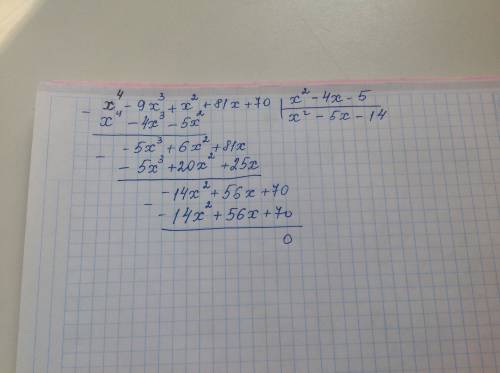 - x⁴ - 9x³ + x² + 81x + 70 | x² - 4x - 5
x⁴ - 4x³ - 5x² | x² - 5x - 14
- - 5x³ + 6x² + 81x
- 5x³ + 20x² + 25x
- - 14x² + 56x + 70
- 14x² + 56x + 70
0